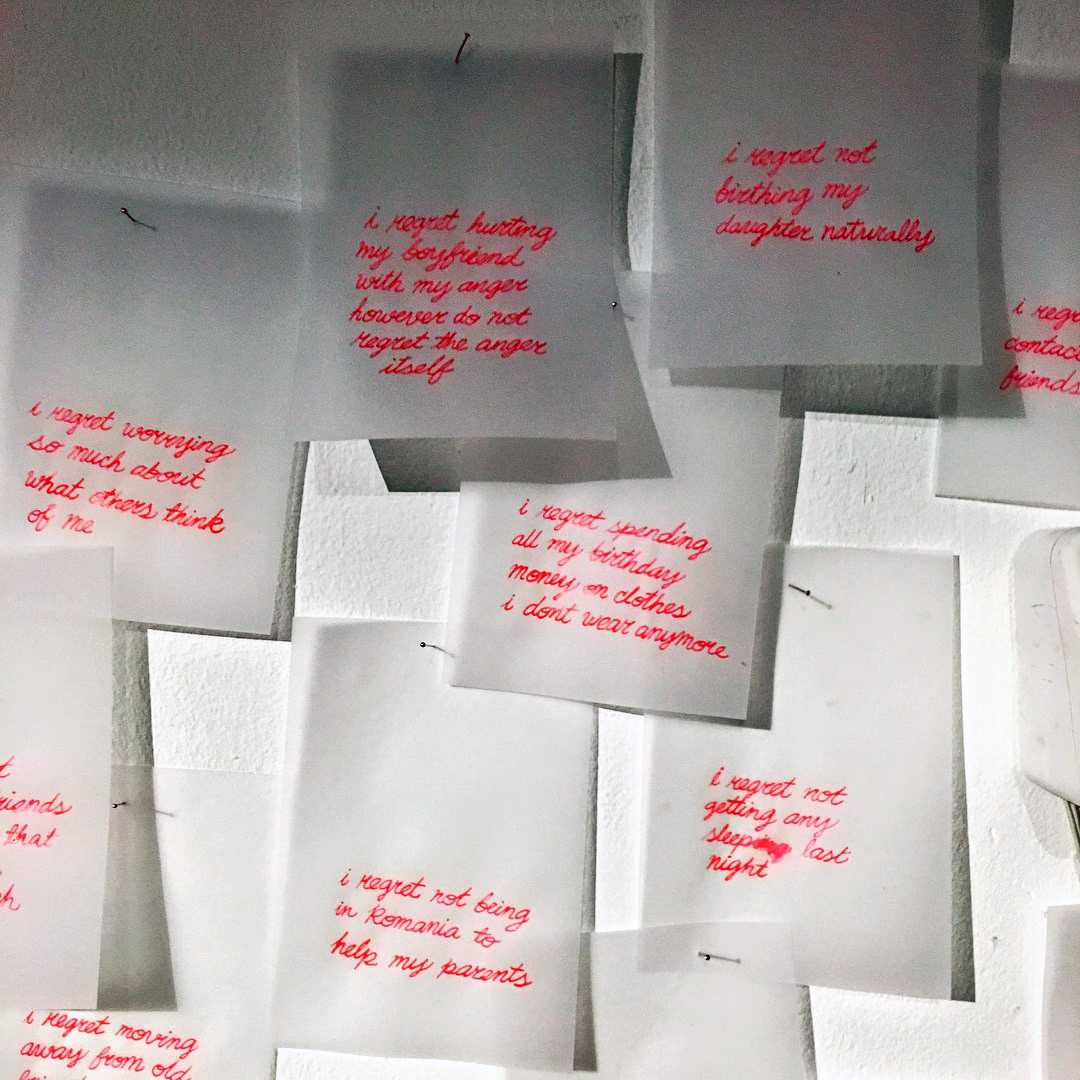 i regret not
birthing my
daughter naturally
i regret hurting
my boyfriend
with my anger
however do not
regret the anger
itself
contact
friends
i regret worrying
so much about
what others think
of me
i regret spending
all my birthday
money on clothes
i dont wear anymore
i regret not
getting any
sleep last
night
that
i regret not being
in Romania to
help my parents
i regret moving
away from old